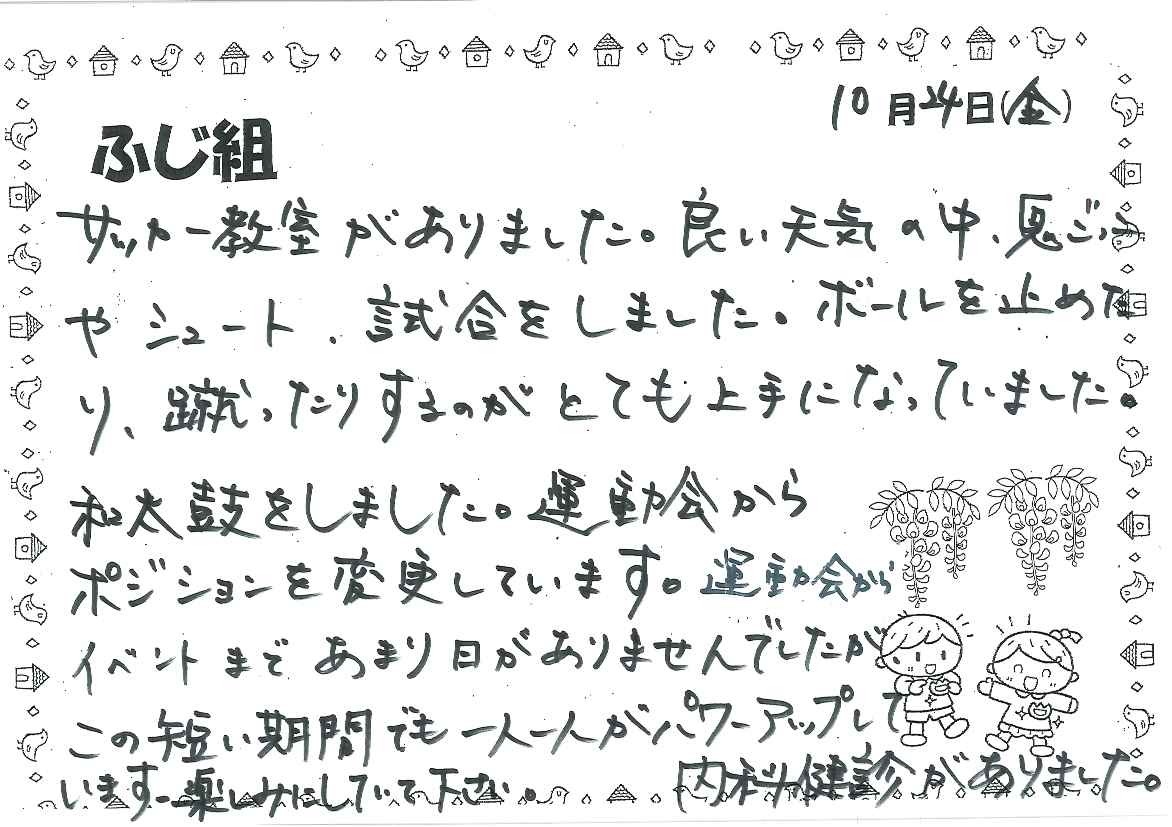 10月24日(金)
ふじ組
サッカー教室がありました。良い天気の中、鬼ごっこ
やシュート、試合をしました。ボールを止めた
り、蹴ったりするのがとても上手になっていました。
和太鼓をしました。運動会から
ポジションを変更しています。運動会から
イベントまであまり日がありませんでしたが
この短い期間でも一人一人がパワーアップして
います。楽しみにしていて下さい。 内科健診がありました。